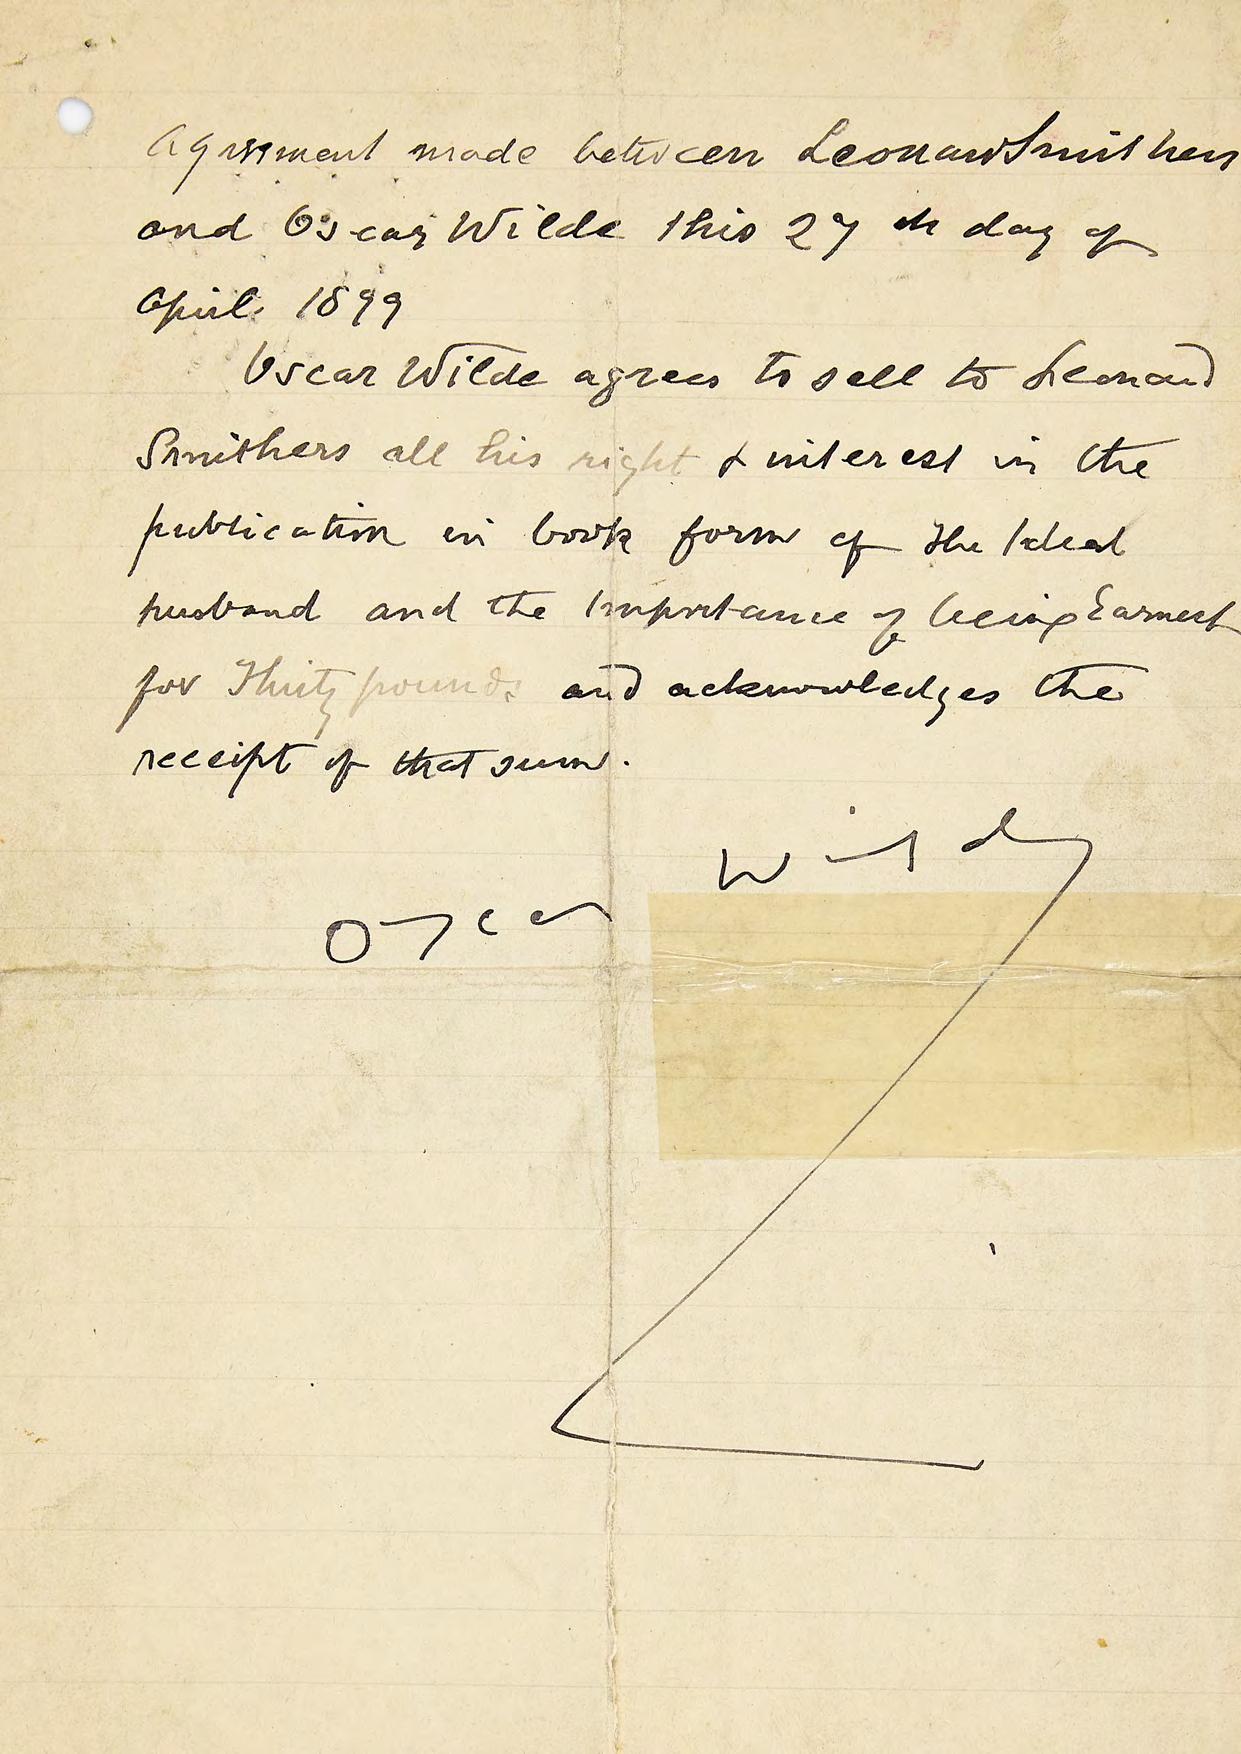 Agreement made between Leonard Smithers
and Oscar Wilde this 27th day of
April 1899
Oscar Wilde agrees to sell to Leonard
Smithers all his right & interest in the
publication in book form of the Ideal
husband and the Importance of being Earnest
for Thirty pounds and acknowledges the
receipt of that sum.
Oscar Wilde